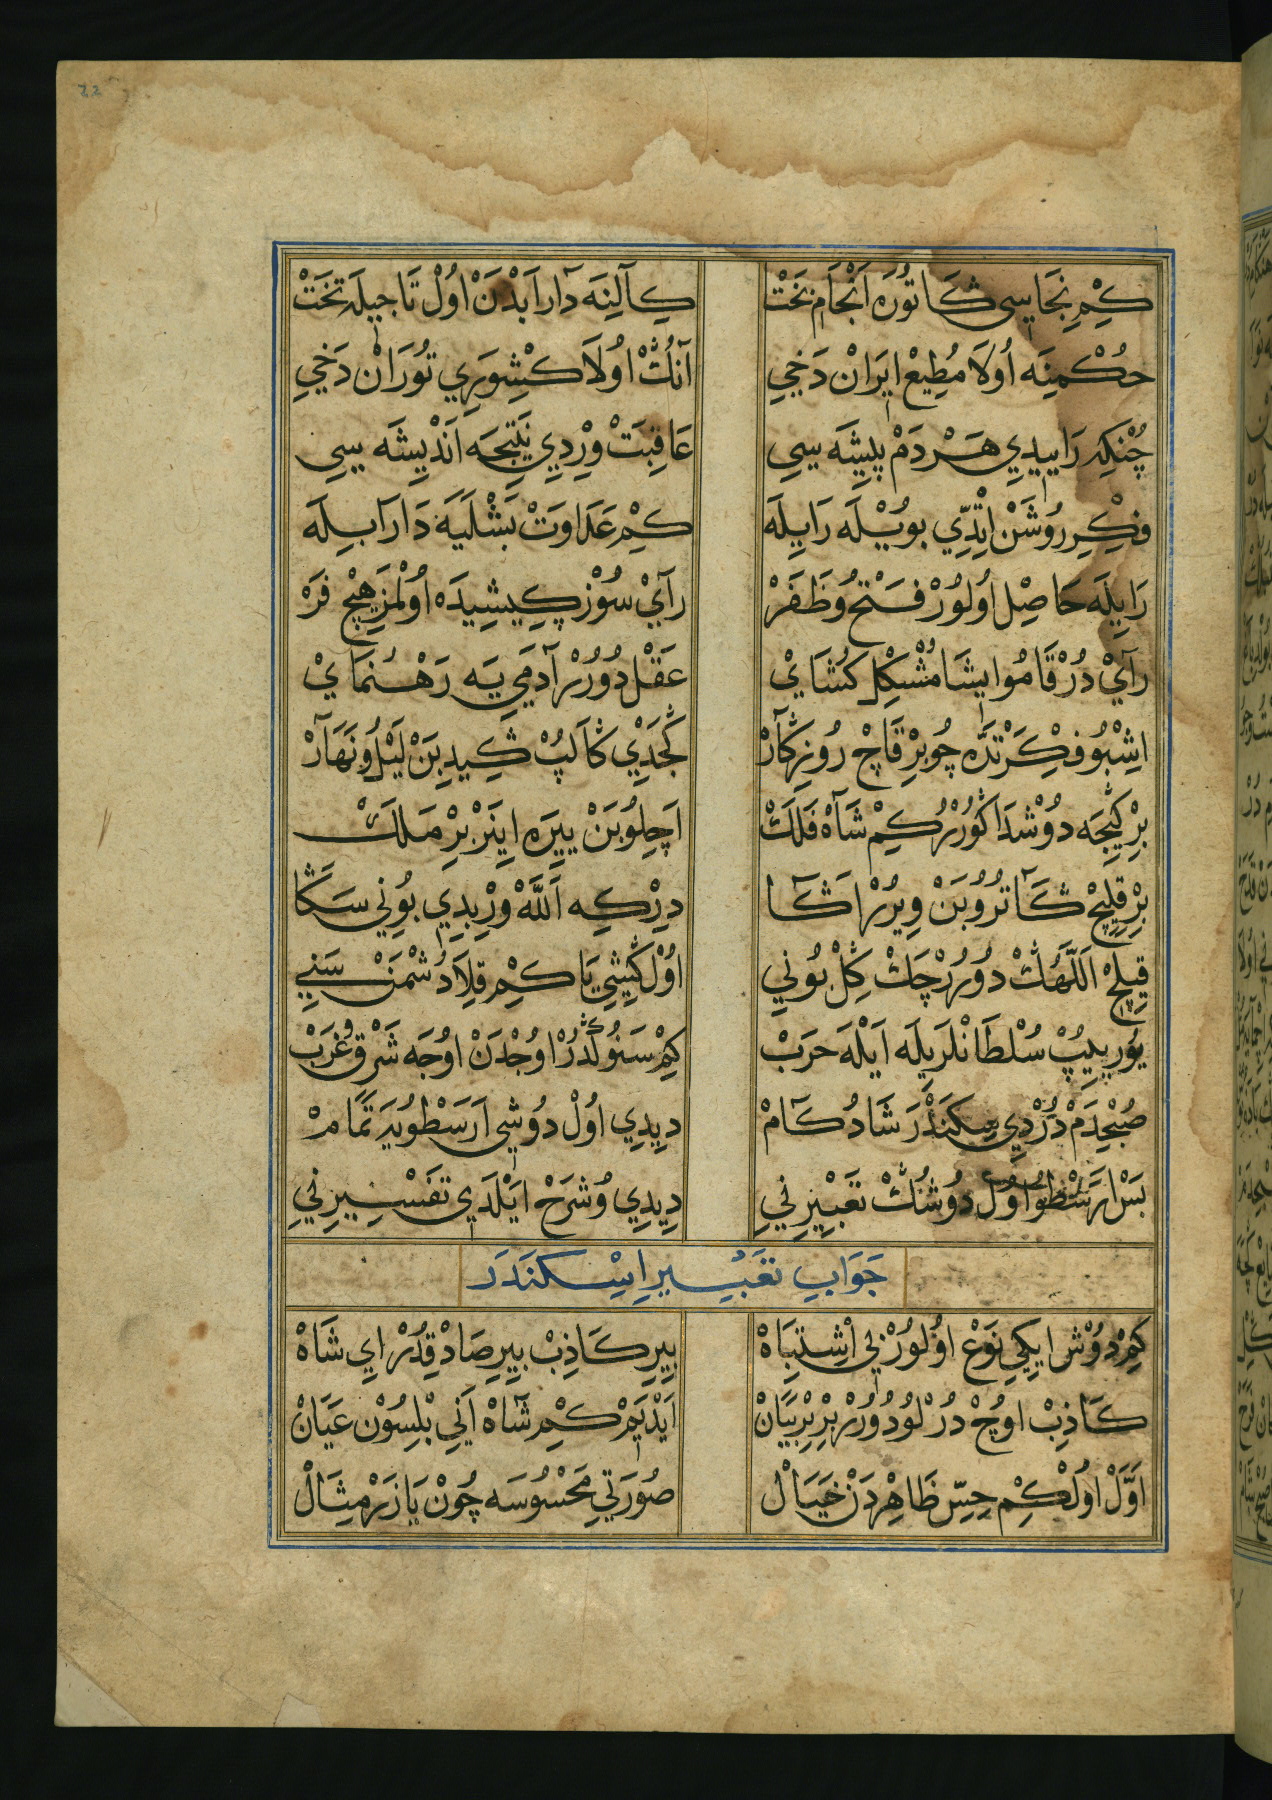 22
كِمْ نِجَايسِى ڭَا تُورَه اَنْجَامِ بَخْتْ كِه آلِنَه دَارَابَدْنَ اُولْ تَاجِيلَه تَخْتْ
حُكْمِنَه اُولَا مُطِيعْ ايرَانْ دَخِي آنُڭْ اُولَا كِشْوَرِي تُورَانْ دَخِي
چُنْكِه رَاييدِي هَرْ دَمْ پِيشَه سِي عَاقِبَتْ وِرْدِي نَتِيجَه اَنْدِيشَه سِي
فِكْرِ رُوشَنْ اِتْدِّي بويْلَه رَايِلَه كِمْ عَدَاوَتْ بَشْلَيَه دَارَابِلَه
رَايِلَه حَاصِلْ اُولُورْ فَتْحُ وظَفَرْ رآيْ سُوزْ كِيشِيدَه اُولْمَزْ هِيچْ فَرْ
رآيْ دُرْ قَامُو ايشَا مُشْكِلْ كُشَايْ عَقْلْ دُورُرْ آدَمِي يَه رَهْنُمَايْ
اِشْبُو فِكِرْ تَدَّه چُو بِرْ قَاچْ رُوزِڭَارْ كَچَدِي ڭَالُپْ ڭِيدِبَنْ لَيْلُ ونَهَارْ
بِرْ ڭِيجَه دُوشْدَا ڭُورُرْ كِمْ شَاه فَلَكْ اَچِلُوبَنْ ييرَه اِينَرْ بِرْ مَلَكْ
بِرْ قِلِيچْ ڭَا تُرُوبَنْ وِيرُرْ اَڭَا دِرْكِه اَللّٰهْ وِرْيدِي بُونِي سَڭَا
قِيلِچْ اَللّٰهُڭْ دُورُرْ چَكْ ڭِلْ بُونِي اُولْ ڭِيشِي يَا كِمْ قِلَا دُشْمَنْ سَنِي
يُورِييپْ سُلْطَانْلَرِيلَه اَيْلَه حَرَبْ كِمْ سَنُوڭْدُرْ اوجْدَنْ اوجَه شَرْقُ وغَرْبْ
صُبْحِدَمْ دُرْدِي سِكَنْدَرْ شَادُ كَامْ دِيدِي اُولْ دُوشِي اَرَسْطُويَه تَمَامْ
بَسْ اَرَسْطُو اُولْ دُوشُڭْ تَعْبِيرِنِي دِيدِي وُ شَرْحْ ايْلَدِي تَفْسِيرِنِي
جَوَابِ تَعْبِيرِ اِسْكَنْدَرْ
كِمْ دُوشْ ايكِي نَوْعْ اوُلُورْ بِي اِشْتِبَاه بِيرِ كَاذِبْ بِيرِ صَادِقْدُرْ اِي شَاه
كَاذِبْ اوُچْ دُرْلُو دُورُرْ بِرْ بِرْ بَيَانْ اَيْدَيَمْ كِمْ شَاه اَنِي بْلِسُونْ عَيَانْ
اَوَّلْ اُولْ كِمْ حِسِّ ظَاهِرْ دَنْ خَيَالْ صُورَتِي مَحْسُوسَه چُونْ يَازَرْ مِثَالْ